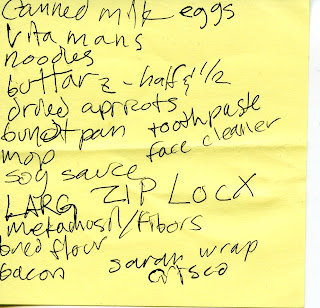 canned milk eggs
vitamans
noodles
buttar 2 - half & 1/2
dried apricots
bundt pan toothpaste
mop face cleaner
soy sauce
LARG ZIP LOCX
metamusil/fibors
bred flour
bacon saran wrap
crisco